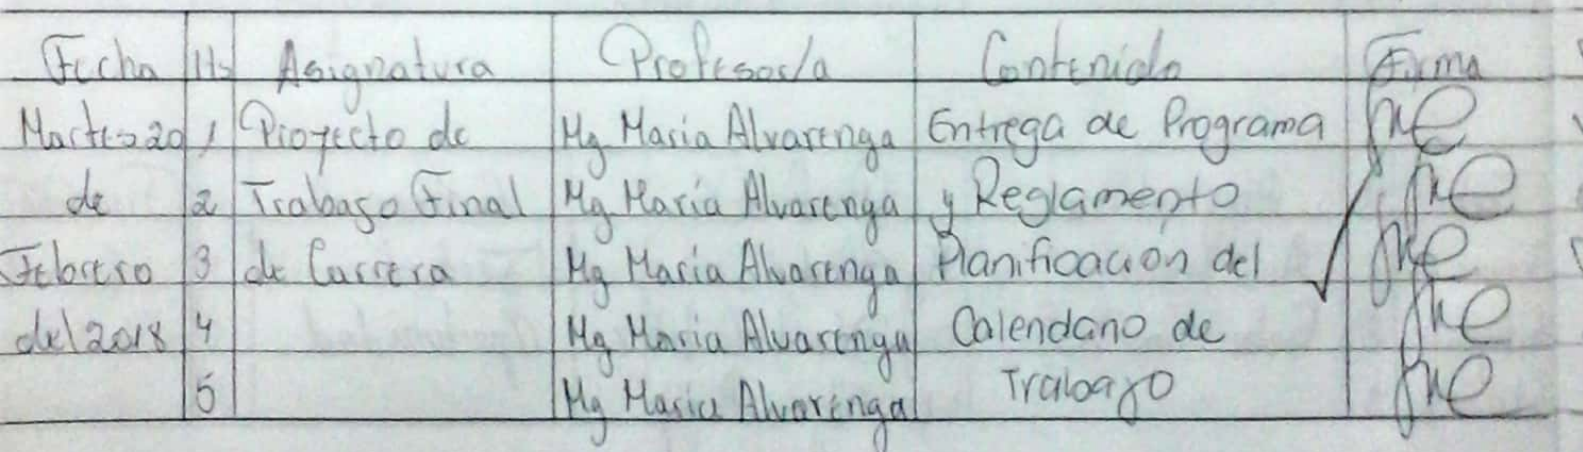 Fecha Hs Asignatura Profesor/a Contenido Firma
Martes 20 1 Proyecto de Mg Maria Alvarenga Entrega de Programa
de 2 Trabajo Final Mg Maria Alvarenga y Reglamento
Febrero 3 de Carrera Mg Maria Alvarenga Planificación del
del 2018 4 Mg Maria Alvarenga Calendario de
5 Mg Maria Alvarenga Trabajo